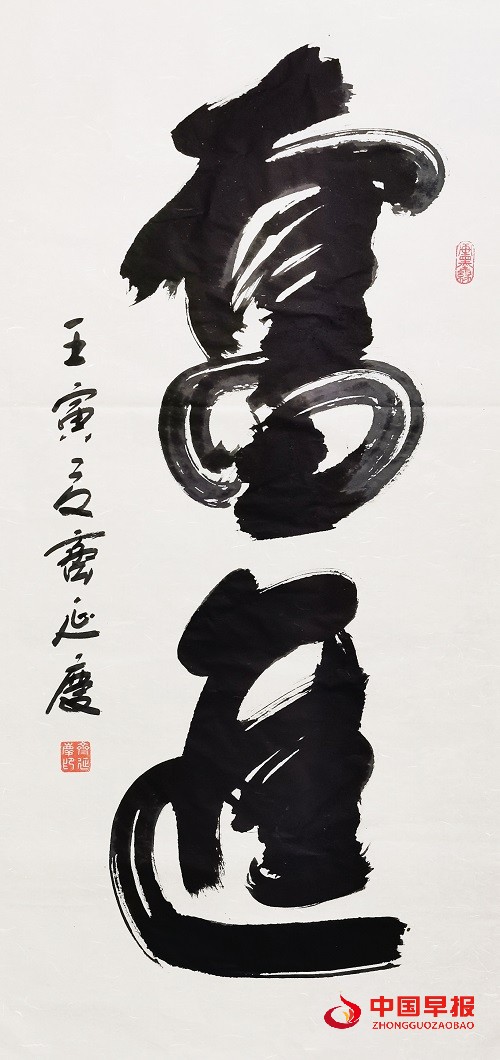 奮進
壬寅夏齊延慶
齊延慶印
中国早报
ZHONGGUOZAOBAO